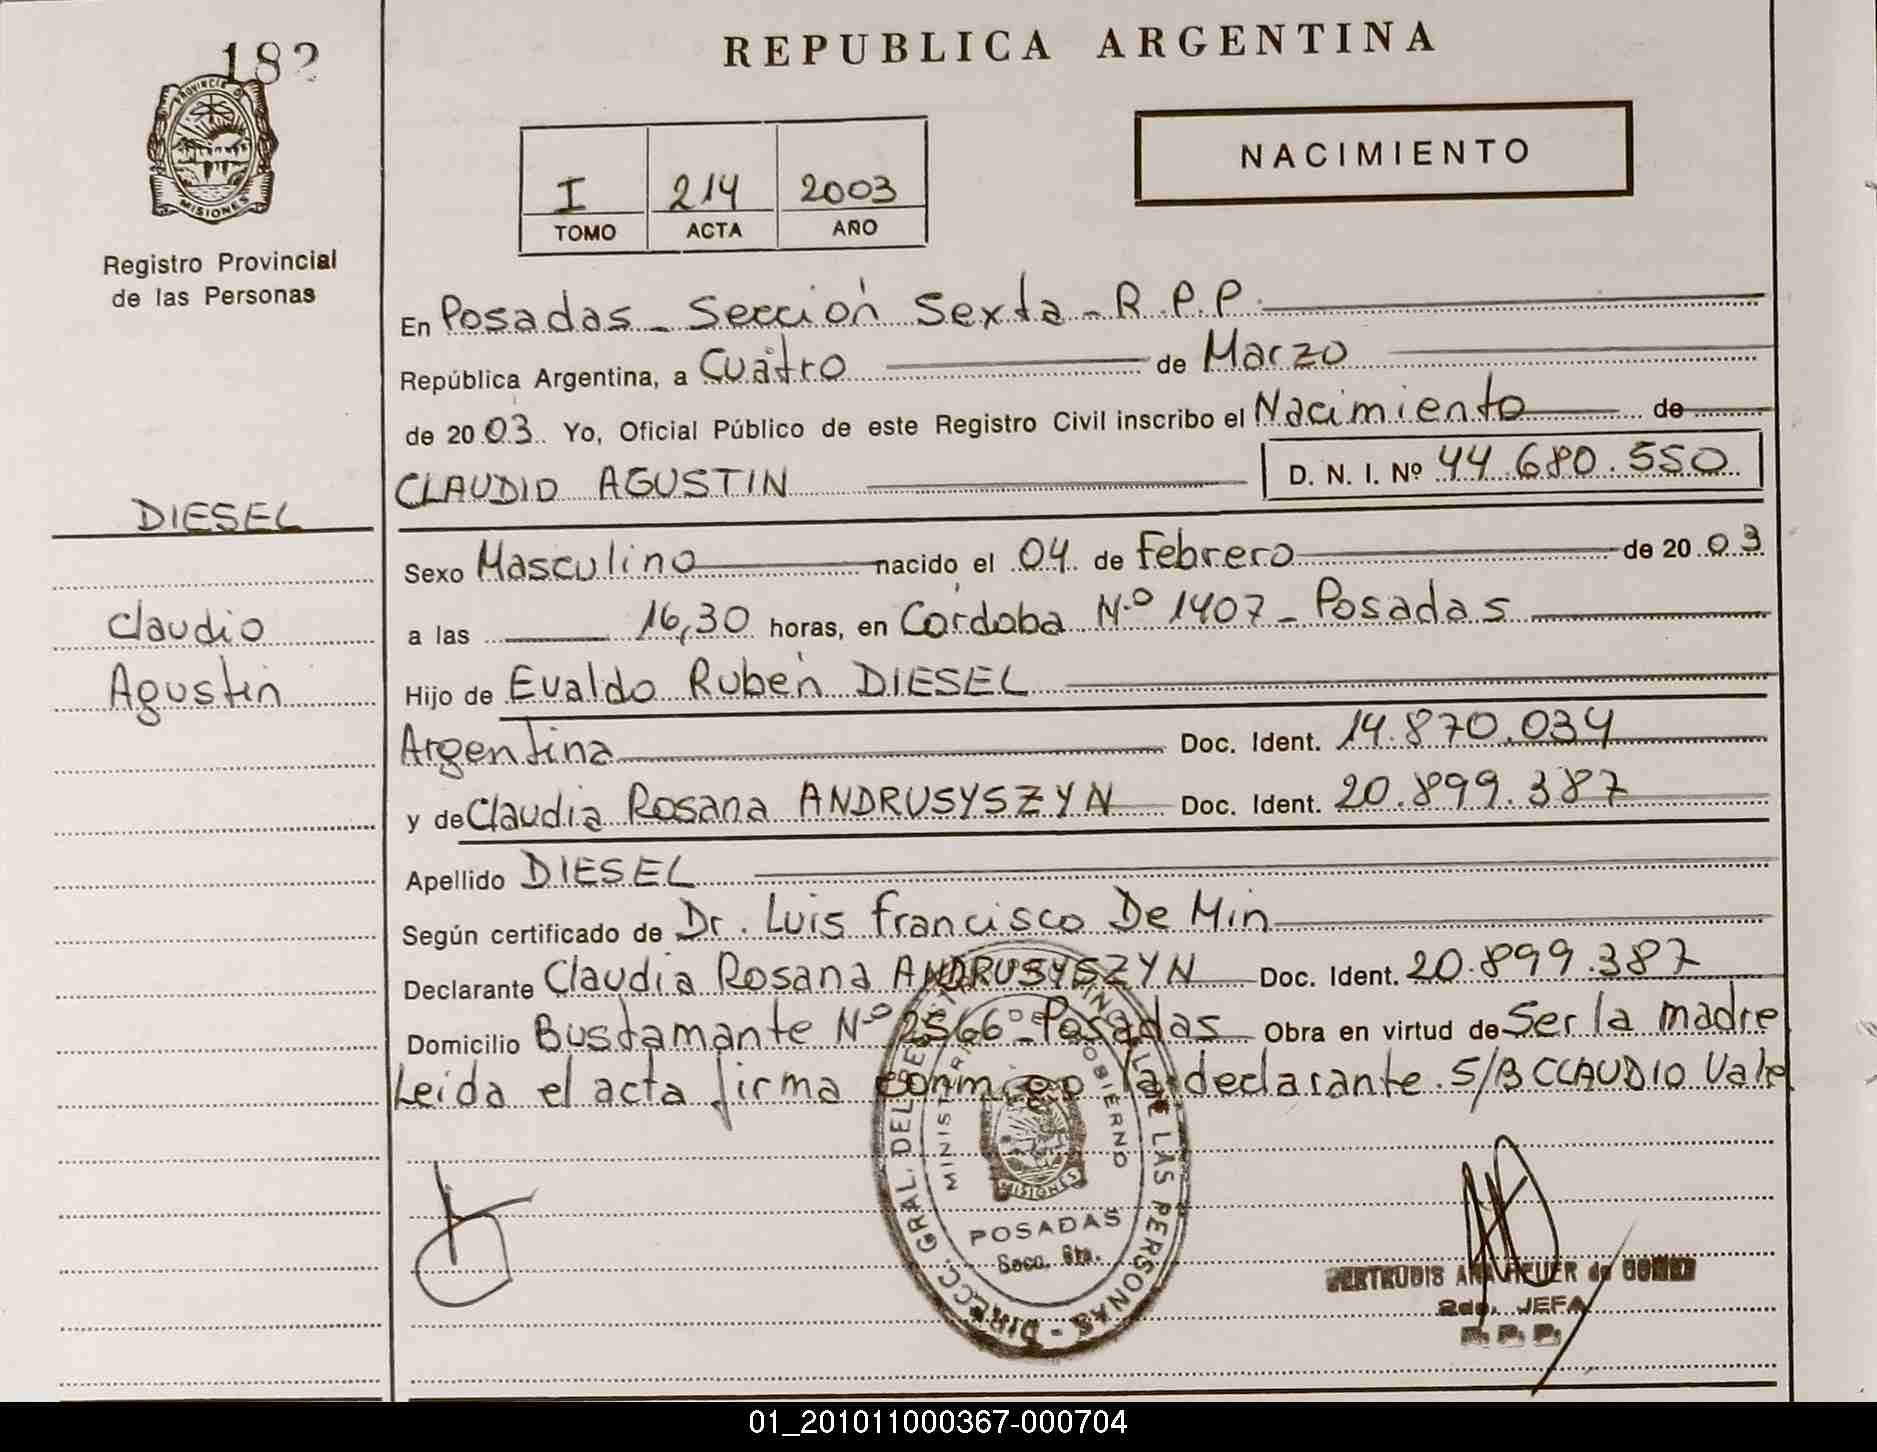 182
REPUBLICA ARGENTINA
PROVINCIA D
MISIONES
Registro Provincial
de las Personas
NACIMIENTO
I 214 2003
TOMO ACTA AÑO
En Posadas - Sección Sexta - R.P.P.
República Argentina, a Cuatro de Marzo
de 2003. Yo, Oficial Público de este Registro Civil inscribo el Nacimiento de
CLAUDIO AGUSTIN D. N. I. Nº 44.680.550
DIESEL
Claudio
Agustin
Sexo Masculino nacido el 04 de Febrero de 2003
a las 16,30 horas, en Córdoba N.º 1407 - Posadas
Hijo de Evaldo Rubén DIESEL
Argentina Doc. Ident. 14.870.034
y de Claudia Rosana ANDRUSYSZYN Doc. Ident. 20.899.387
Apellido DIESEL
Según certificado de Dr. Luis Francisco De Min
Declarante Claudia Rosana ANDRUSYSZYN Doc. Ident. 20.899.387
Domicilio Bustamante Nº 2566 - Posadas Obra en virtud de Ser la madre
Leida el acta firma conmigo la declarante. S/B CLAUDIO Vale
DIRECC. GRAL. DEL LAS PERSONAS
GOBIERNO
MISIONES
POSADAS
Secc. 6ta.
GERTRUDIS ANA de
2da. JEFA
R. P. P.
01_201011000367-000704